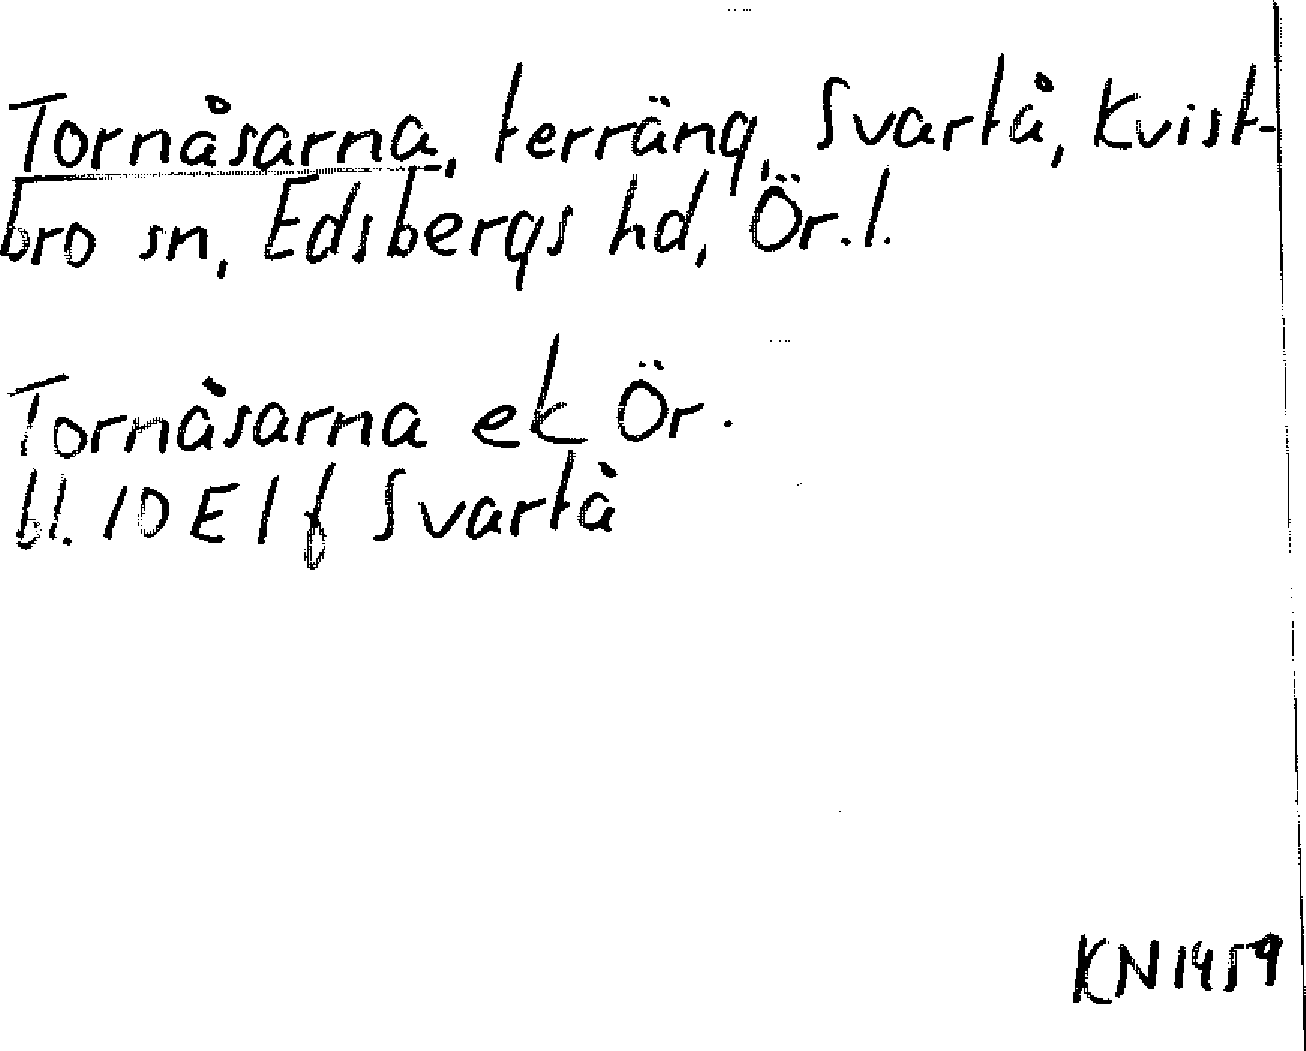 Tornåsarna, terräng, Svartå, Kvist-
bro sn, Edsbergs hd, Ör. l.
Tornåsarna ek Ör.
bl. 10 E 1 f Svartå
KN 1459